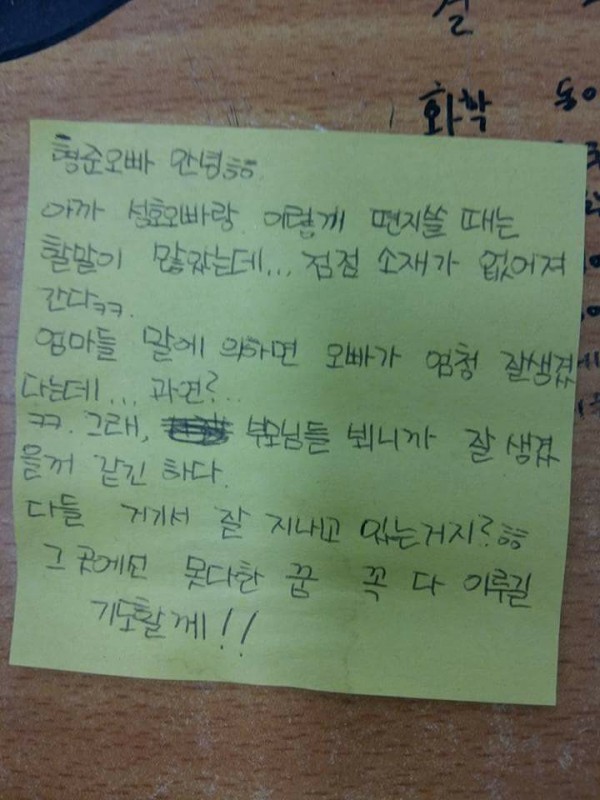 화학
형준오빠 안녕ㅎㅎ
아까 성호오빠랑 이렇게 편지쓸 때는
할말이 많았는데... 점점 소재가 없어져
간다ㅋㅋ.
엄마들 말에 의하면 오빠가 엄청 잘생겼
다는데... 과연?..
ㅋㅋ. 그래, 부모님들 뵈니까 잘 생겼
을꺼 같긴 하다.
다들 거기서 잘 지내고 있는거지?ㅎㅎ
그 곳에선 못다한 꿈 꼭 다 이루길
기도할게!!